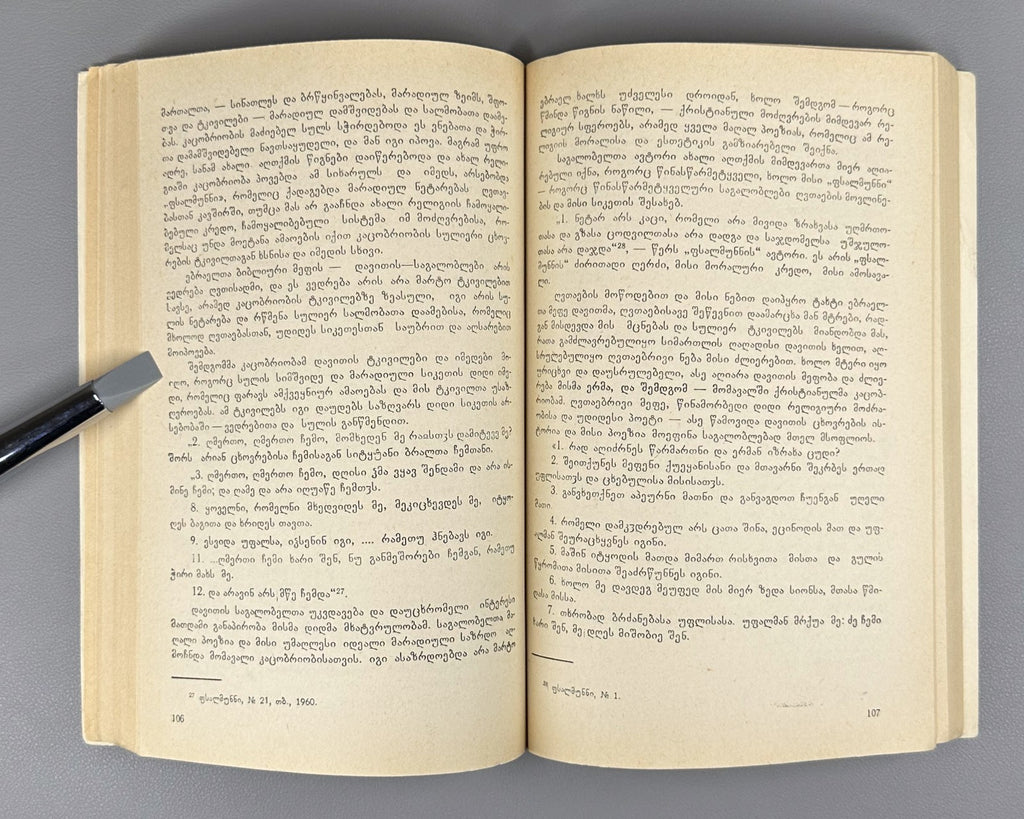 მართალთა, — სინათლეს და ბრწყინვალებას, მარადიულ ზეიმს, შფო-
თვა და ტკივილები — მარადიულ დამშვიდებას და სალმობათა დაამე-
ბას. კაცობრიობის მაძიებელ სულს სჭირდებოდა ეს ვნებათა და ჭირ-
თა დამამშვიდებელი ნავთსაყუდელი, და მან იგი იპოვა. მაგრამ უფრო
ადრე, სანამ ახალი აღთქმის წიგნები დაიწერებოდა და ახალ რელი-
გიაში კაცობრიობა პოვებდა ამ სიხარულს და იმედს, არსებობდა
„ფსალმუნნი», რომელიც ქადაგებდა მარადიულ ნეტარებას ღვთაე-
ბასთან კავშირში, თუმცა მას არ გააჩნდა ახალი რელიგიის ჩამოყალი-
ბებული კრედო, ჩამოყალიბებული სისტემა იმ მოძღვრებისა, რო-
მელსაც უნდა მოეტანა ამაოების იქით კაცობრიობის სულიერი ცხოვ-
რების ტკივილთაგან ხსნისა და იმედის სხივი.
ებრაელთა ბიბლიური მეფის — დავითის—საგალობლები არის
ვედრება ღვთისადმი, და ეს ვედრება არის არა მარტო ტკივილებით
სავსე, არამედ კაცობრიობის ტკივილებზე ზეასული, იგი არის სუ-
ლის ნეტარება და რწმენა სულიერ სალმობათა დაამებისა, რომელიც
მხოლოდ ღვთაებასთან, უდიდეს სიკეთესთან საუბრით და აღსარებით
მოიპოვება.
შემდგომმა კაცობრიობამ დავითის ტკივილები და იმედები მი-
იღო, როგორც სულის სიმშვიდე და მარადიული სიკეთის დიდი იმე-
დი, რომელიც ფარავს ამქვეყნიურ ამაოებას და მის ტკივილთა უსაზ-
ღვროებას. ამ ტკივილებს იგი დაუდებს საზღვარს დიდი სიკეთის არ-
სებობაში — ვედრებითა და სულის განწმენდით.
„2. ღმერთო, ღმერთო ჩემო, მომხედენ მე რაჲსთჳს დამიტევე მე?
შორს არიან ცხოვრებისა ჩემისაგან სიტყუანი ბრალთა ჩემთანი.
„3. ღმერთო, ღმერთო ჩემო, დღისი ჴმა ვყავ შენდამი და არა ის-
მინე ჩემი; და ღამე და არა იღუაწე ჩემთჳს.
8. ყოველნი, რომელნი მხედვიდეს მე, მეკიცხევდეს მე, იტყო-
დეს ბაგითა და ხრიდეს თავთა.
9. ესვიდა უფალსა, იჴსენინ იგი, .... რამეთუ ჰნებავს იგი.
11. ...ღმერთი ჩემი ხარი შენ, ნუ განმეშორები ჩემგან, რამეთუ
ჭირი მახს მე.
12. და არავინ არს მწე ჩემდა“²⁷.
დავითის საგალობელთა უკვდავება და დაუცხრომელი ინტერესი
მათდამი განაპირობა მისმა დიდმა მხატვრულობამ. საგალობელთა მა-
ღალი პოეზია და მისი უმაღლესი იდეალი მარადიული საზრდო აღ-
მოჩნდა მომავალი კაცობრიობისათვის. იგი ასაზრდოებდა არა მარტო
²⁷ ფსალმუნნი, № 21, თბ., 1960.
106
ებრაელ ხალხს უძველესი დროიდან, ხოლო შემდგომ — როგორც
წმინდა წიგნის ნაწილი, — ქრისტიანული მოძღვრების მიმდევარ რე-
ლიგიურ სფეროებს, არამედ ყველა მაღალ პოეზიას, რომელიც ამ რე-
ლიგიის მორალისა და ესთეტიკის გამზიარებელი შეიქნა.
საგალობელთა ავტორი ახალი აღთქმის მიმდევართა მიერ აღია-
რებული იქნა, როგორც წინასწარმეტყველი, ხოლო მისი „ფსალმუნნი“
— როგორც წინასწარმეტყველური საგალობლები ღვთაების მოვლინე-
ბის და მისი სიკეთის შესახებ.
„1. ნეტარ არს კაცი, რომელი არა მივიდა ზრახვასა უღმრთო-
თასა და გზასა ცოდვილთასა არა დადგა და საჯდომელსა უშჯულო-
თასა არა დაჯდა“²⁸, — წერს „ფსალმუნნის“ ავტორი. ეს არის „ფსალ-
მუნნის“ ძირითადი ღერძი, მისი მორალური კრედო, მისი ამოსავა-
ლი.
ღვთაების მოწოდებით და მისი ნებით დაიპყრო ტახტი ებრაელ-
თა მეფე დავითმა, ღვთაებისავე შეწევნით დაამარცხა მან მტრები, რად-
გან მისდევდა მის მცნებას და სულიერ ტკივილებს მიანდობდა მას,
რათა გამძლავრებულიყო სიმართლის ღაღადისი დავითის ხელით, აღ-
სრულებულიყო ღვთაებრივი ნება მისი ძლიერებით. ხოლო მტერი იყო
ურიცხვი და დაუსრულებელი, ასე აღიარა დავითის მეფობა და ძლიე-
რება მისმა ერმა, და შემდგომ — მომავალში ქრისტიანულმა კაცობ-
რიობამ. ღვთაებრივი მეფე, წინამორბედი დიდი რელიგიური მოძრა-
ობისა და უდიდესი პოეტი — ასე წამოვიდა დავითის ცხოვრების ის-
ტორია და მისი პოეზია მოეფინა საგალობლებად მთელ მსოფლიოს.
«1. რად აღიძრნეს წარმართნი და ერმან იზრახა ცუდი?
2. შეითქუნეს მეფენი ქუეყანისანი და მთავარნი შეკრბეს ერთად
უფლისათჳს და ცხებულისა მისისათჳს.
3. განვხეთქნეთ აპეურნი მათნი და განვაგდოთ ჩუენგან უღელი
მათი.
4. რომელი დამკჳდრებულ არს ცათა შინა, ეცინოდის მათ და უფ-
ალმან შეურაცხყვნეს იგინი.
5. მაშინ იტყოდის მათდა მიმართ რისხვითა მისთა და გულის
წყრომითა მისითა შეაძრწუნნეს იგინი.
6. ხოლო მე დავდეგ მეუფედ მის მიერ ზედა სიონსა, მთასა წმი-
დასა მისსა.
7. თხრობად ბრძანებასა უფლისასა. უფალმან მრქუა მე: ძე ჩემი
ხარი შენ, მე დღეს მიშობიე შენ.
²⁸ ფსალმუნნი, № 1.
107